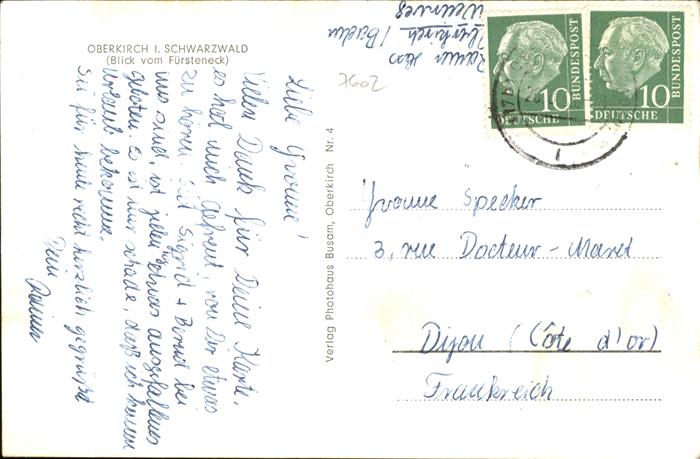 OBERKIRCH I. SCHWARZWALD
(Blick vom Fürsteneck)
Liebe Yvonne!
Vielen Dank für Deine Karte,
es hat mich gefreut, von Dir etwas
zu hören. Seit Sigrid + Bernd bei
uns sind, ist jeden Tag etwas ausgefallenes
geboten. Es ist nur schade, daß ich keinen
Urlaub bekomme.
Sei für heute recht herzlich gegrüßt
Dein
Rainer
Verlag Photohaus Busam, Oberkirch Nr. 4
Rainer
Oberkirch / Baden
7602
10
DEUTSCHE
BUNDESPOST
10
DEUTSCHE
BUNDESPOST
Yvonne Specker
3, rue Docteur-Maret
Dijon (Côte d'or)
Frankreich